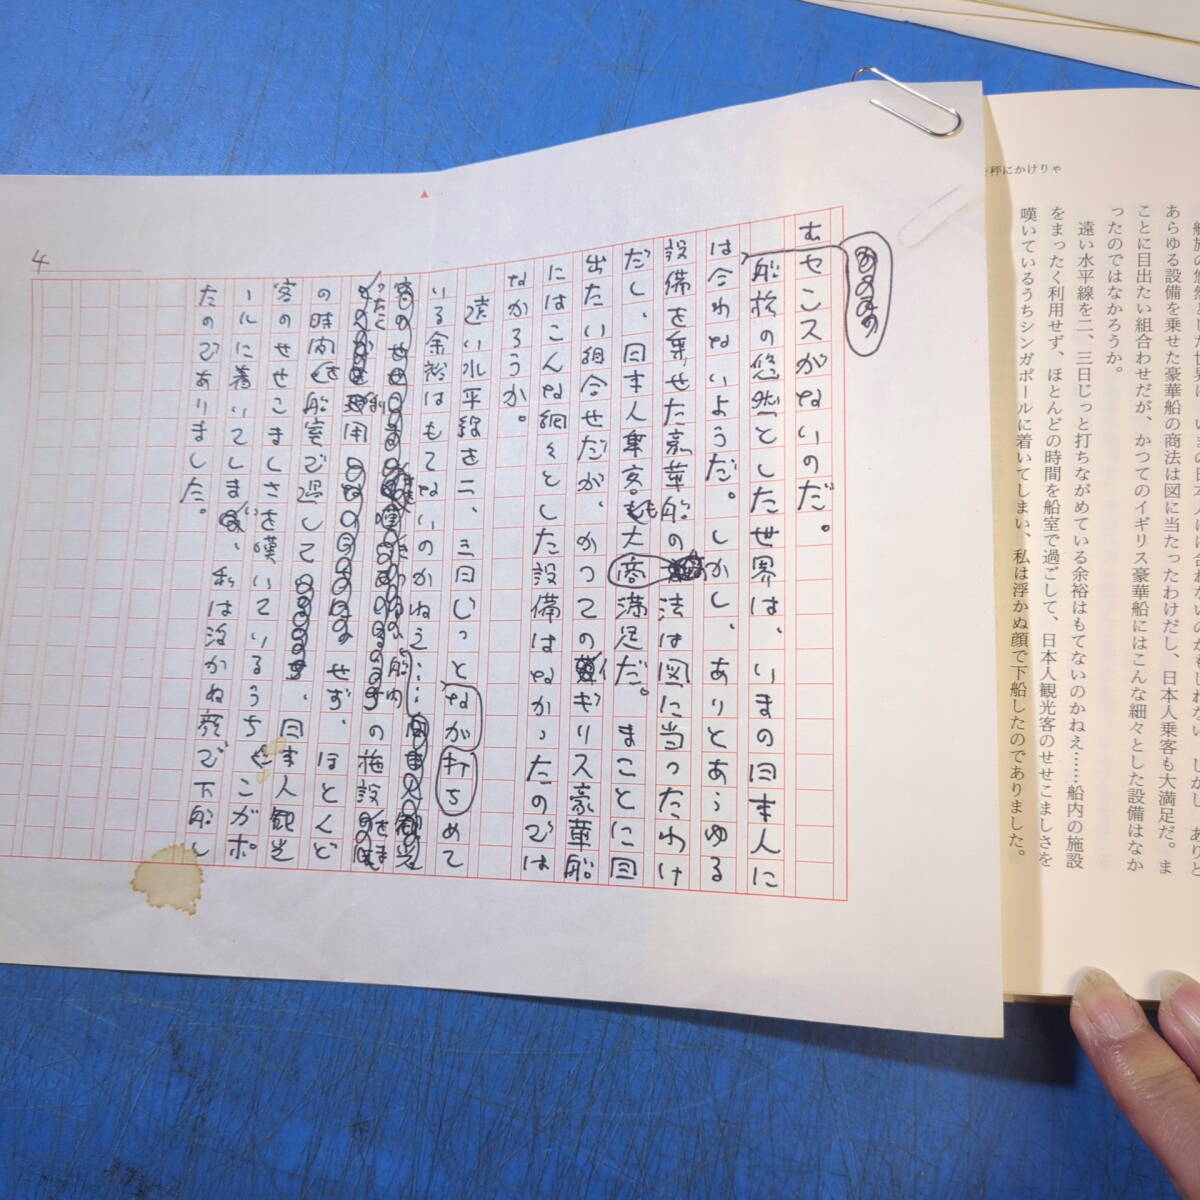 むセンスがないのだ。
船旅の悠然とした世界は、いまの日本人に
は合わないようだ。しかし、ありとあらゆる
設備を乗せた豪華船の商法は図に当ったわけ
だし、日本人乗客も大満足だ。まことに目
出たい組合せだが、かつてのイギリス豪華船
にはこんな細々とした設備はなかったのでは
なかろうか。
遠い水平線を二、三日じっと打ちながめて
いる余裕はもてないのかねえ……
船内
の施設を
まったく利用せず、ほとんど
の時間を船室で過して、日本人観光
客のせせこましさを嘆いているうちシンガポ
ールに着いてしまい、私は浮かぬ顔で下船し
たのでありました。
4
秤にかけりゃ
あらゆる設備を乗せた豪華船の商法は図に当たったわけだし、日本人乗客も大満足だ。ま
ことに目出たい組合わせだが、かつてのイギリス豪華船にはこんな細々とした設備はなか
ったのではなかろうか。
遠い水平線を二、三日じっと打ちながめている余裕はもてないのかねえ……船内の施設
をまったく利用せず、ほとんどの時間を船室で過ごして、日本人観光客のせせこましさを
嘆いているうちシンガポールに着いてしまい、私は浮かぬ顔で下船したのでありました。